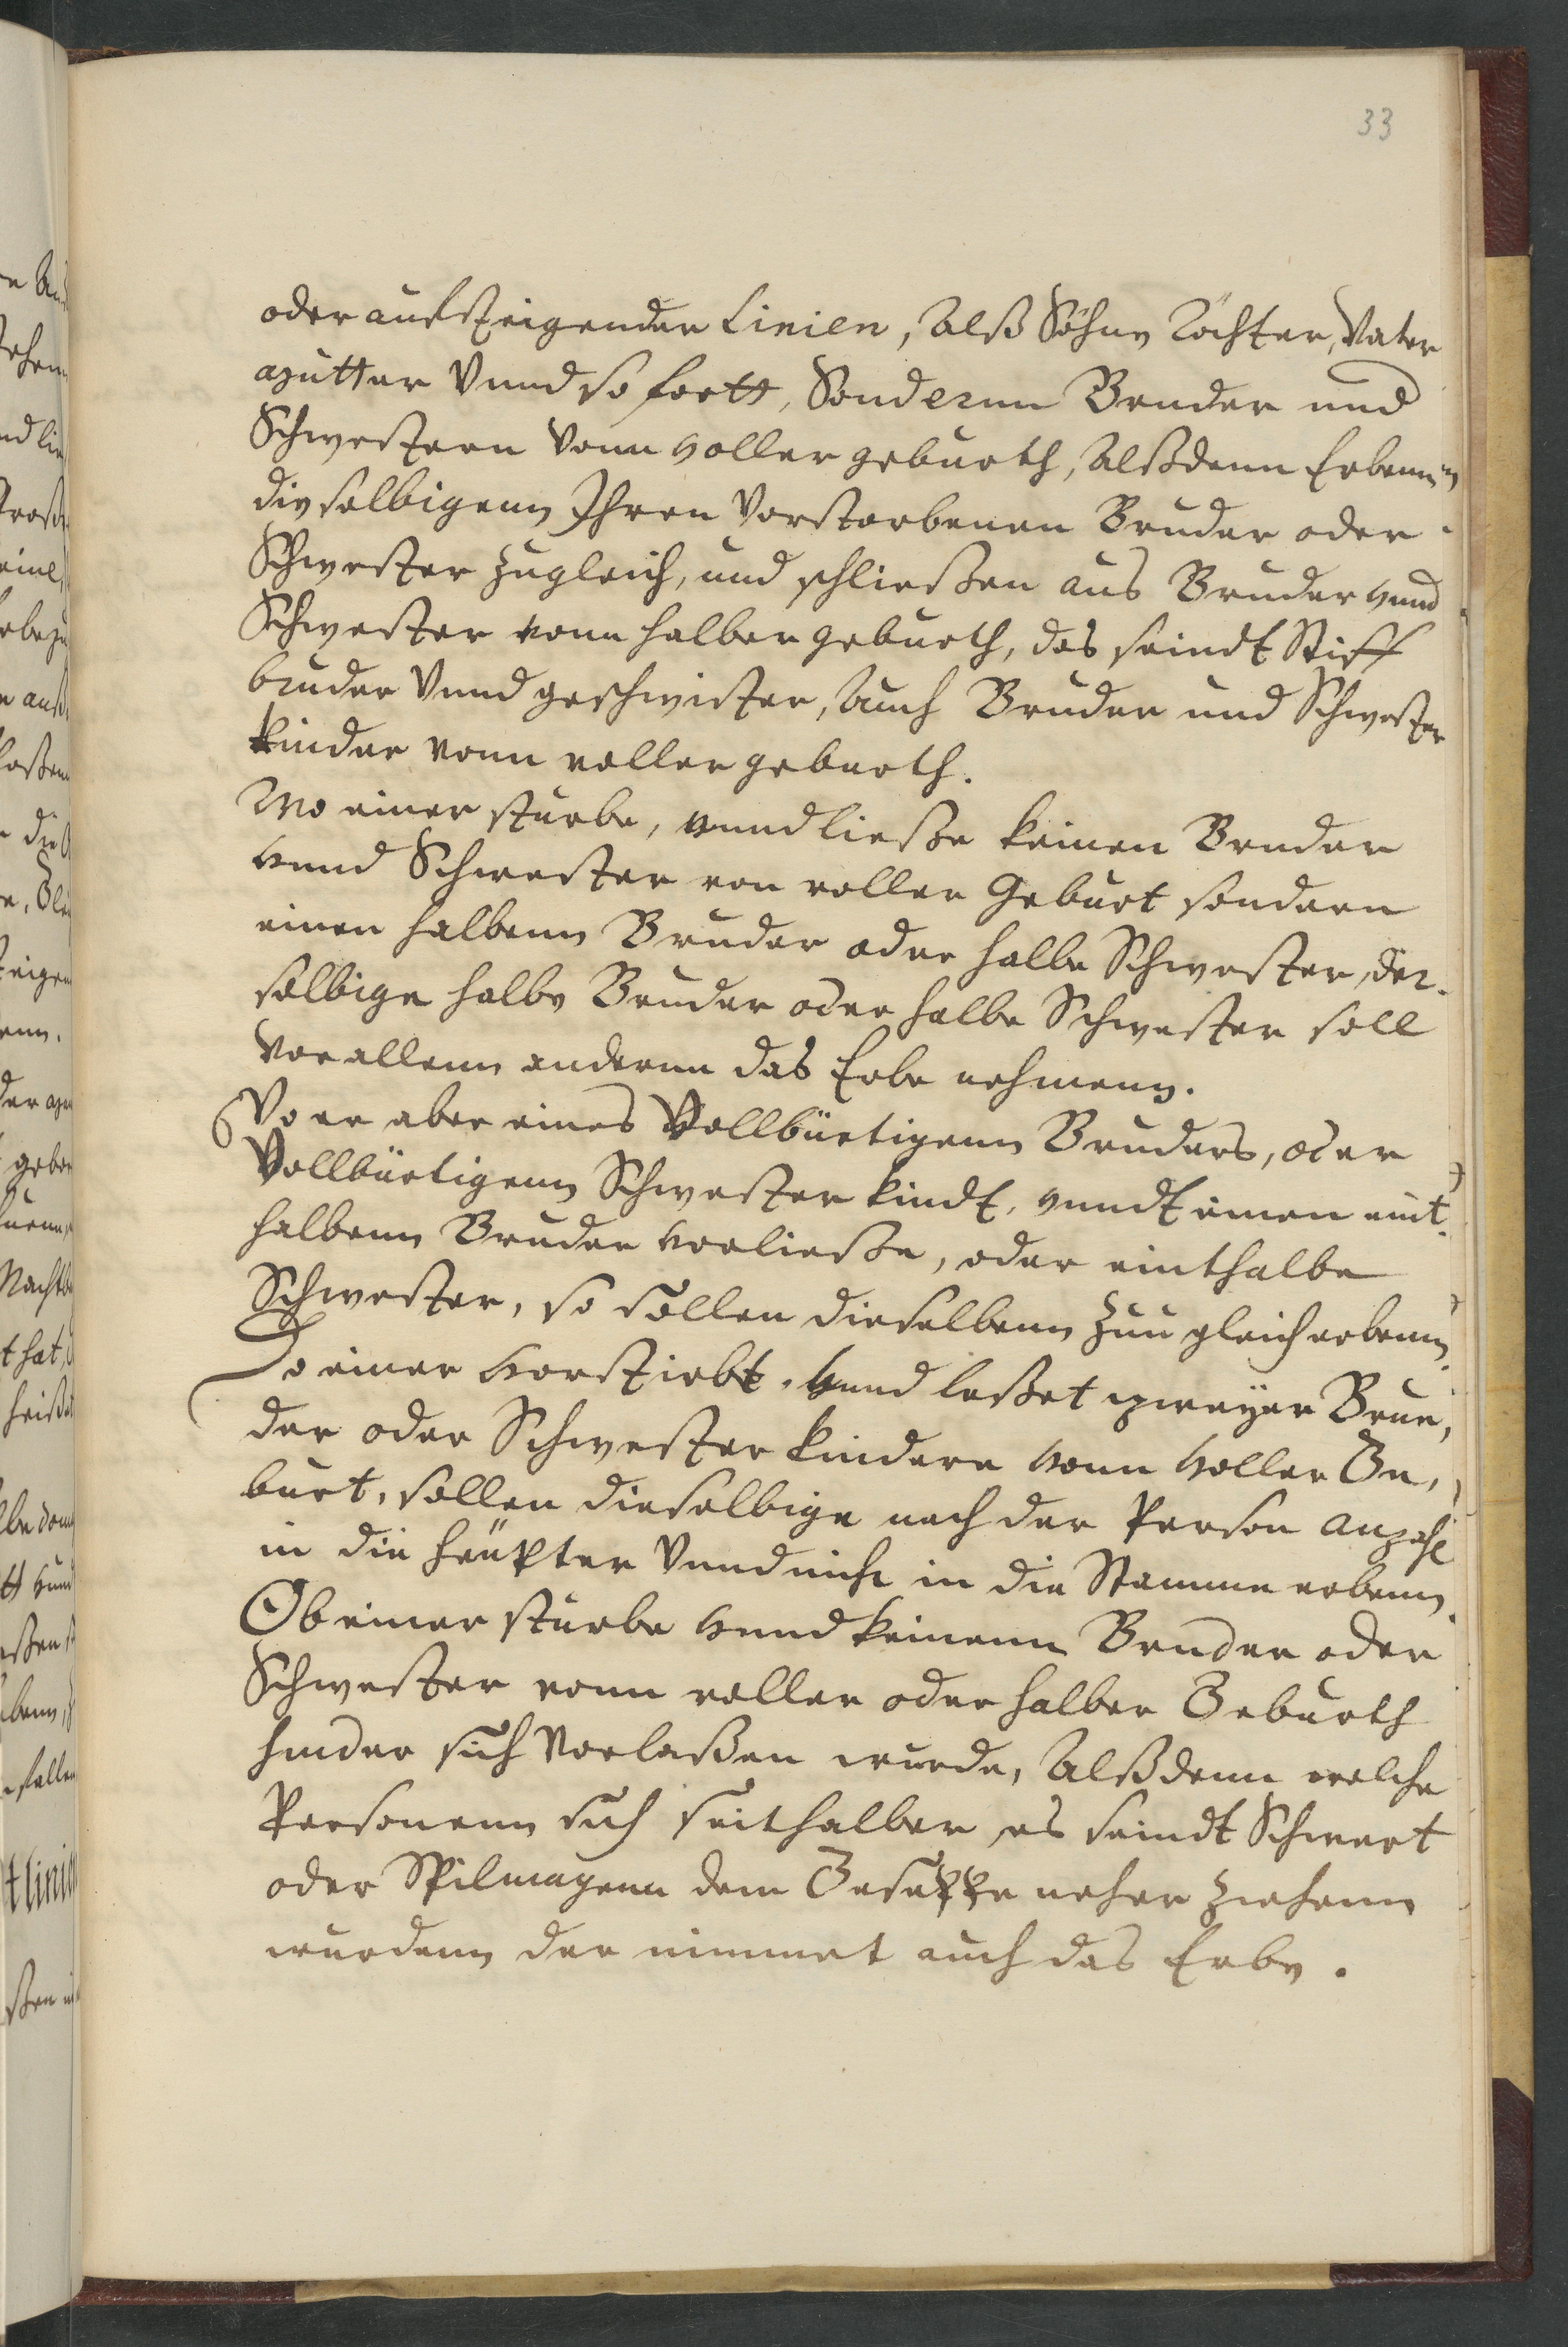 33
oder aufsteigender Linien, Alß Söhne Töchter, Vater
mutter Vnnd so fortt, Sondernn Bruder und
Schwestern Vonn voller geburth, Alßdenn Erbenn
die selbigenn Ihren Vorstorbenen Bruder oder
Schwester zugleich, und schließen aus Bruder vnnd
Schwester vonn halber geburth, das seindt Stiff
bruder Vnnd geschwister, Auch Bruder und Schwester
kinder vonn voller geburth.
Wo einer sturbe, vnnd ließe keinen Bruder
vnnd Schwester von voller Geburt sondern
einen halbenn Bruder oder halbe Schwester, der-
selbige halbe Bruder oder halbe Schwester soll
vor allenn andernn das Erbe nehmenn.
Wo er aber eines Vollbürtigenn Bruders, oder
Vollbürtigenn Schwester kindt, vnndt einen eint
halbenn Bruder vorließe, oder einthalbe
Schwester, so sollen dieselbenn zuu gleich erbenn.
So einer vorstirbt, vnnd leßet zweyer Brue,
der oder Schwester kindere vonn voller Ge,
burt, sollen dieselbige nach der Person anzahl
in die häupter Vnnd nicht in die Stamme erbenn.
Ob einer sturbe vnnd keinenn Bruder oder
Schwester vonn voller oder halber Geburth
hinder sich Vorlaßen wurde, Alßdenn welche
Personenn sich seithalber es seindt Schwert
oder Spilmagenn dem Gesippe neher ziehenn
wurdenn der nimmet auch das Erbe.